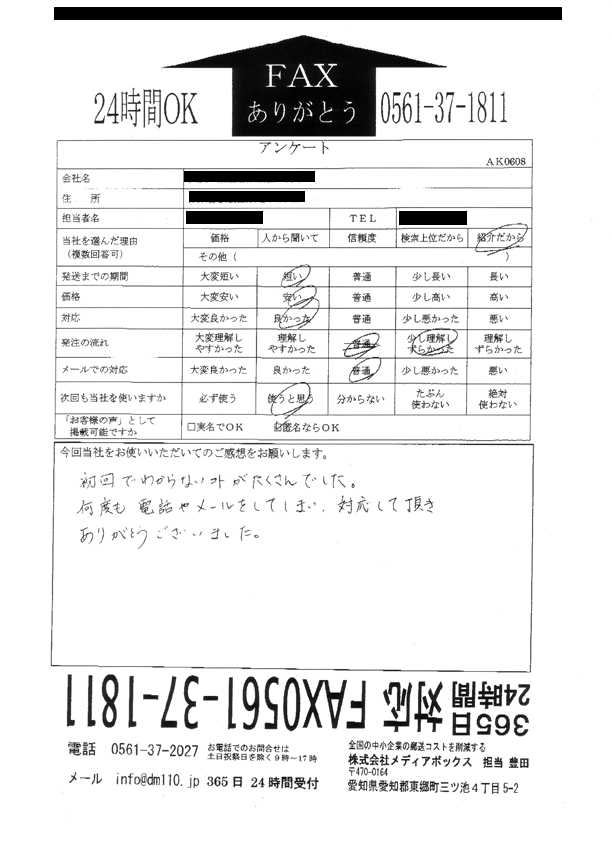 FAX
ありがとう
24時間OK
0561-37-1811
アンケート
AK0608
会社名
住 所
担当者名 TEL
当社を選んだ理由（複数回答可） 価格 人から聞いて 信頼度 検索上位だから 紹介だから
その他（ ）
発送までの期間 大変短い 短い 普通 少し長い 長い
価格 大変安い 安い 普通 少し高い 高い
対応 大変良かった 良かった 普通 少し悪かった 悪い
発注の流れ 大変理解しやすかった 理解しやすかった 普通 少し理解しずらかった 理解しずらかった
メールでの対応 大変良かった 良かった 普通 少し悪かった 悪い
次回も当社を使いますか 必ず使う 使うと思う 分からない たぶん使わない 絶対使わない
「お客様の声」として掲載可能ですか □実名でOK ☑匿名ならOK
今回当社をお使いいただいてのご感想をお願いします。
初回でわからないコトがたくさんでした。
何度も電話やメールをしてしまい、対応して頂き
ありがとうございました。
365日24時間対応 FAX0561-37-1811
電話 0561-37-2027 お電話でのお問合せは
土日祝祭日を除く9時～17時
メール info@dm110.jp 365日 24時間受付
全国の中小企業の郵送コストを削減する
株式会社メディアボックス 担当 豊田
〒470-0164
愛知県愛知郡東郷町三ツ池4丁目5-2